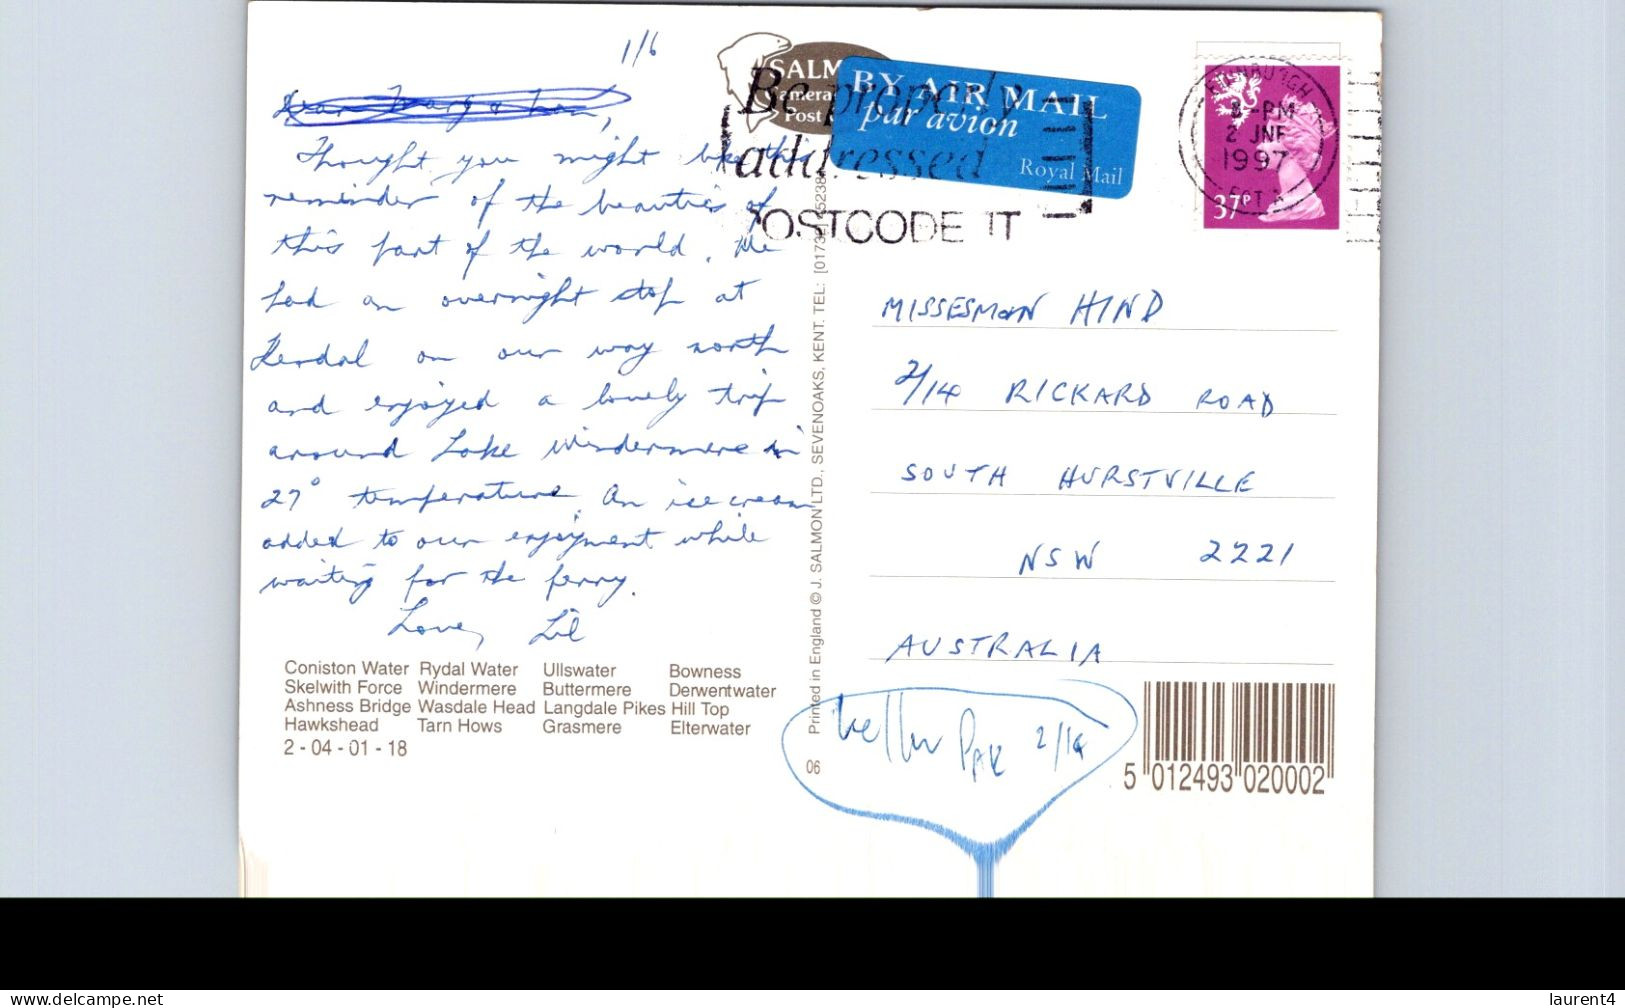 1/6
Dear
Thought you might like this
reminder of the beauties of
this part of the world. We
had an overnight stop at
Kendal on our way north
and enjoyed a lovely trip
around Lake Windermere in
27° temperature. An ice cream
added to our enjoyment while
waiting for the ferry.
Love, Lil
Coniston Water Rydal Water Ullswater Bowness
Skelwith Force Windermere Buttermere Derwentwater
Ashness Bridge Wasdale Head Langdale Pikes Hill Top
Hawkshead Tarn Hows Grasmere Elterwater
2 - 04 - 01 - 18
SALM
Camera
Post
BY AIR MAIL
par avion
Royal Mail
Be properly
addressed
POSTCODE IT
EDINBURGH
8-PM
2 JNE
1997
37P
Printed in England © J. SALMON LTD., SEVENOAKS, KENT. TEL:
06
MISSESMON HIND
2/14 RICKARD ROAD
SOUTH HURSTVILLE
NSW 2221
AUSTRALIA
2/14
5 012493 020002
delcampe.net
laurent4